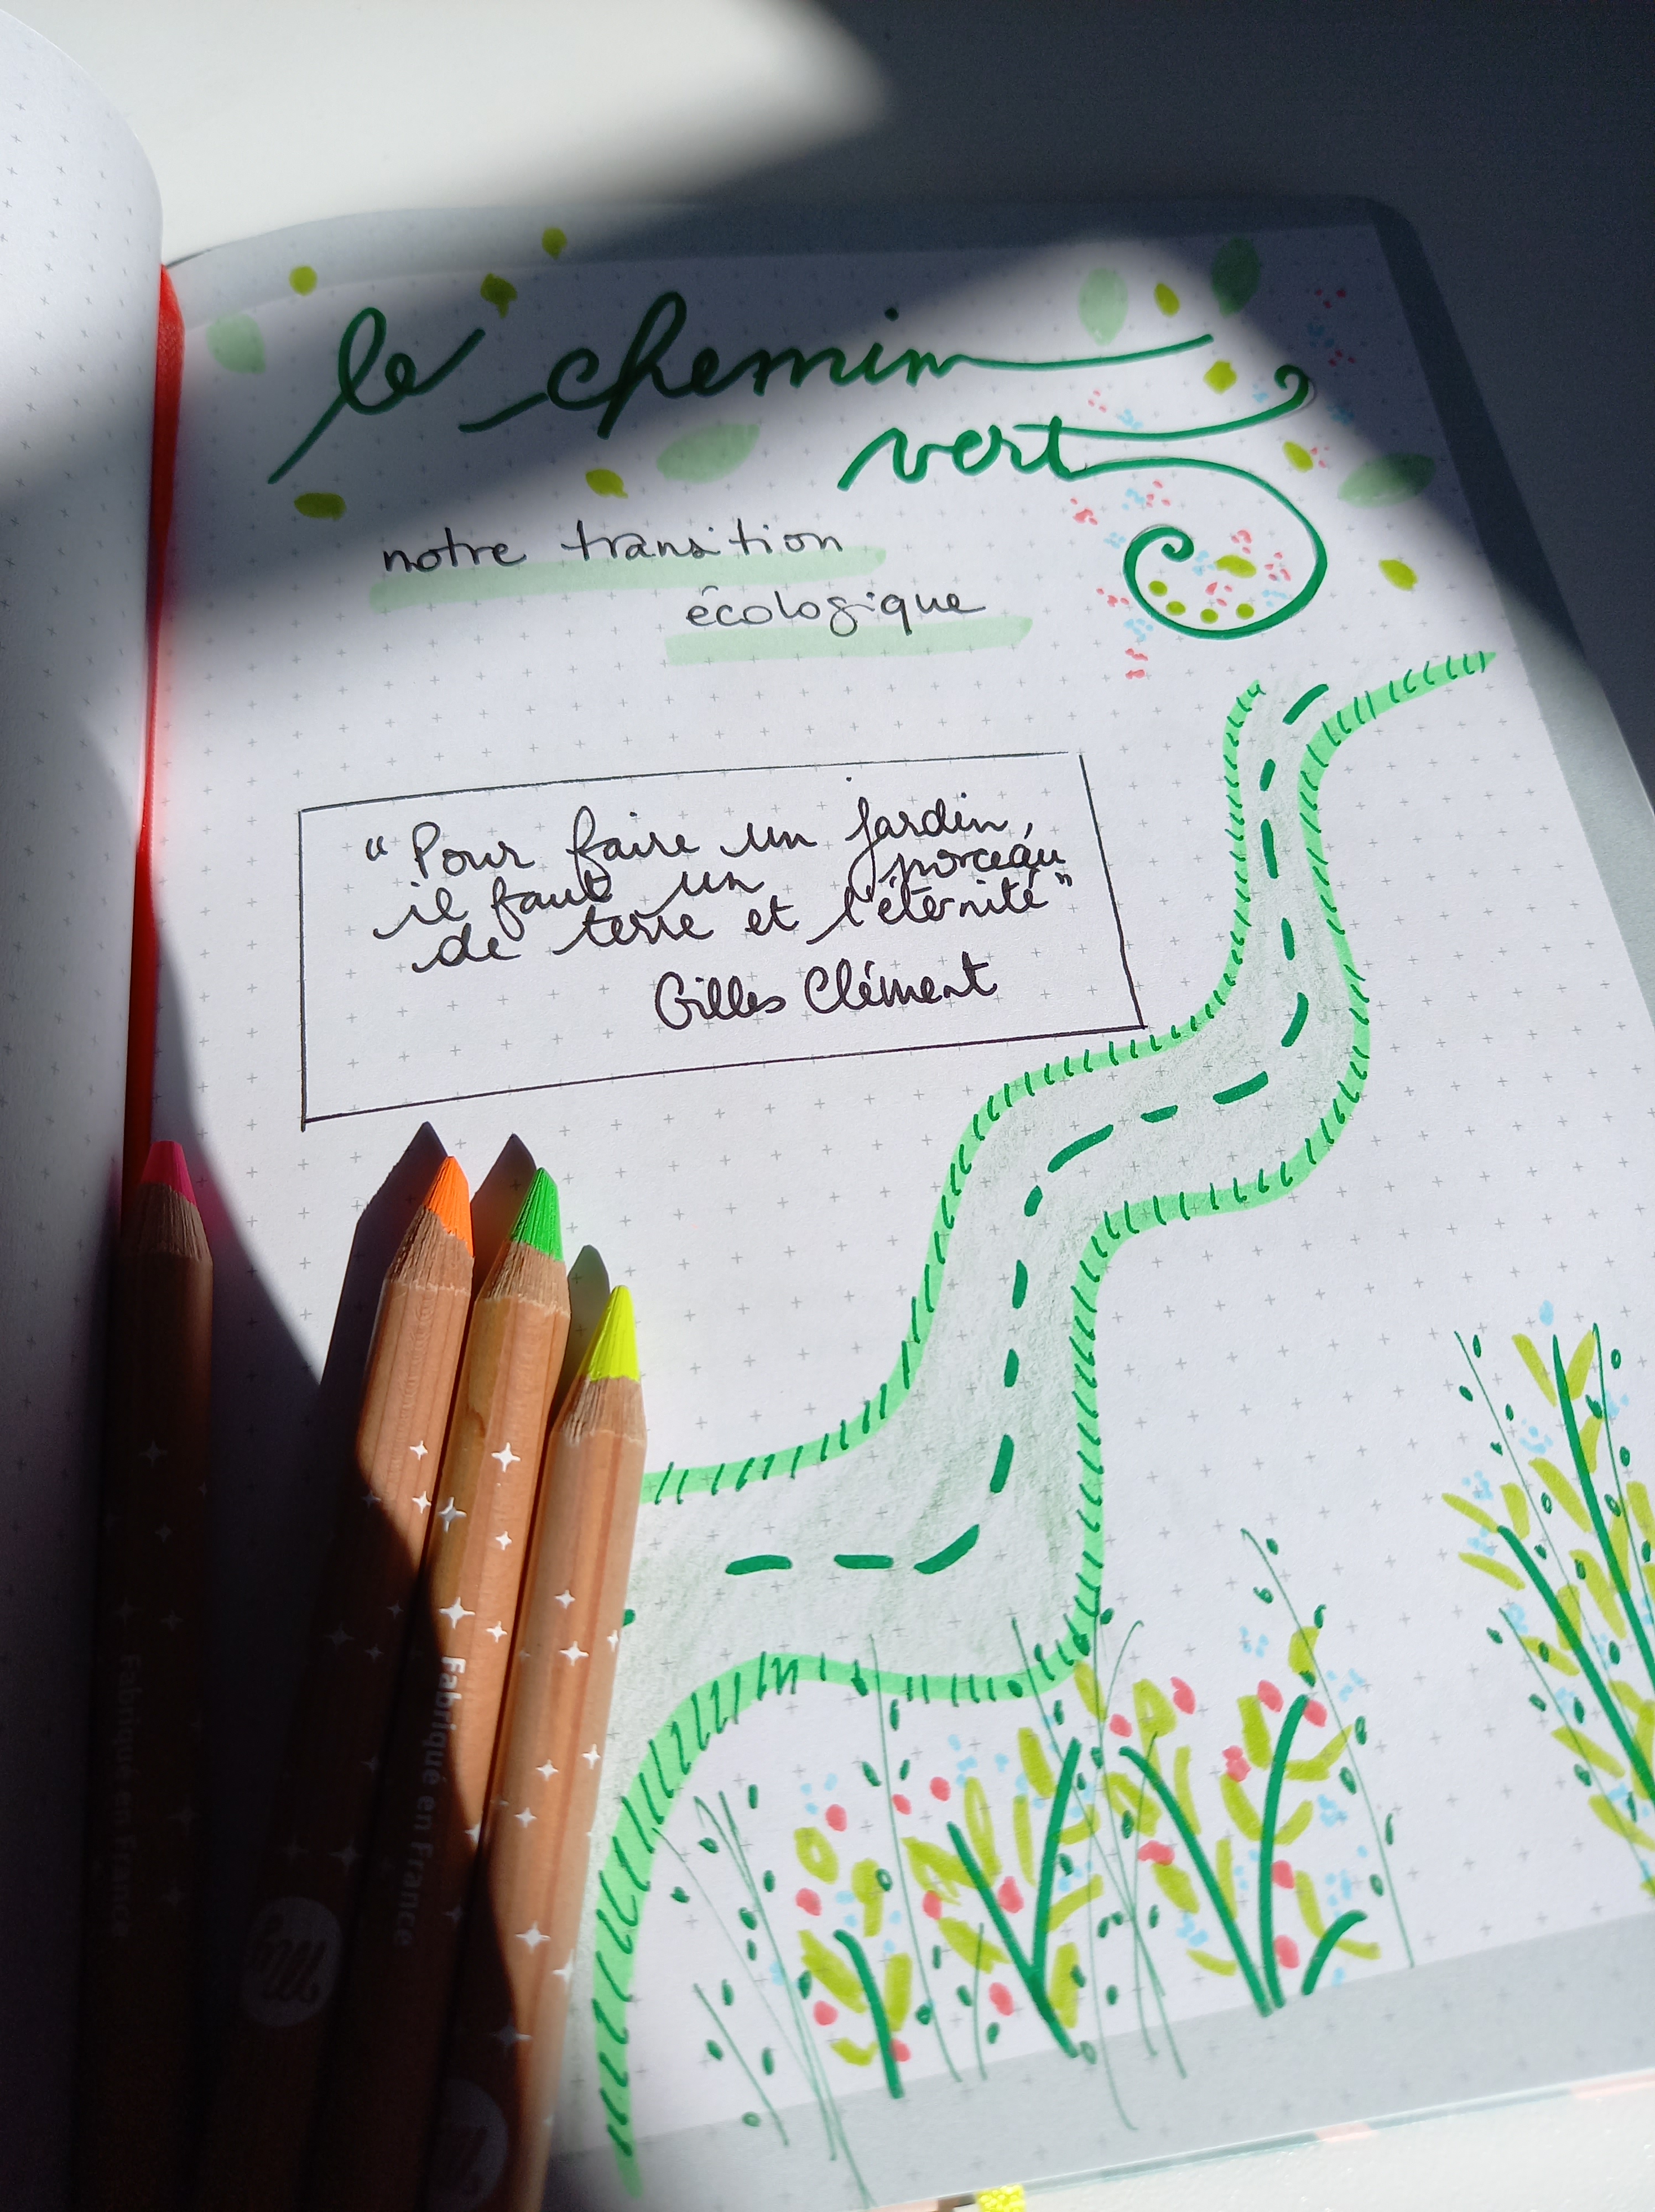 le chemin
vert
notre transition
écologique
“Pour faire un jardin,
il faut un morceau
de terre et l'éternité”
Gilles Clément
Fabriqué en France
Fabriqué en France
Fabriqué en France
My